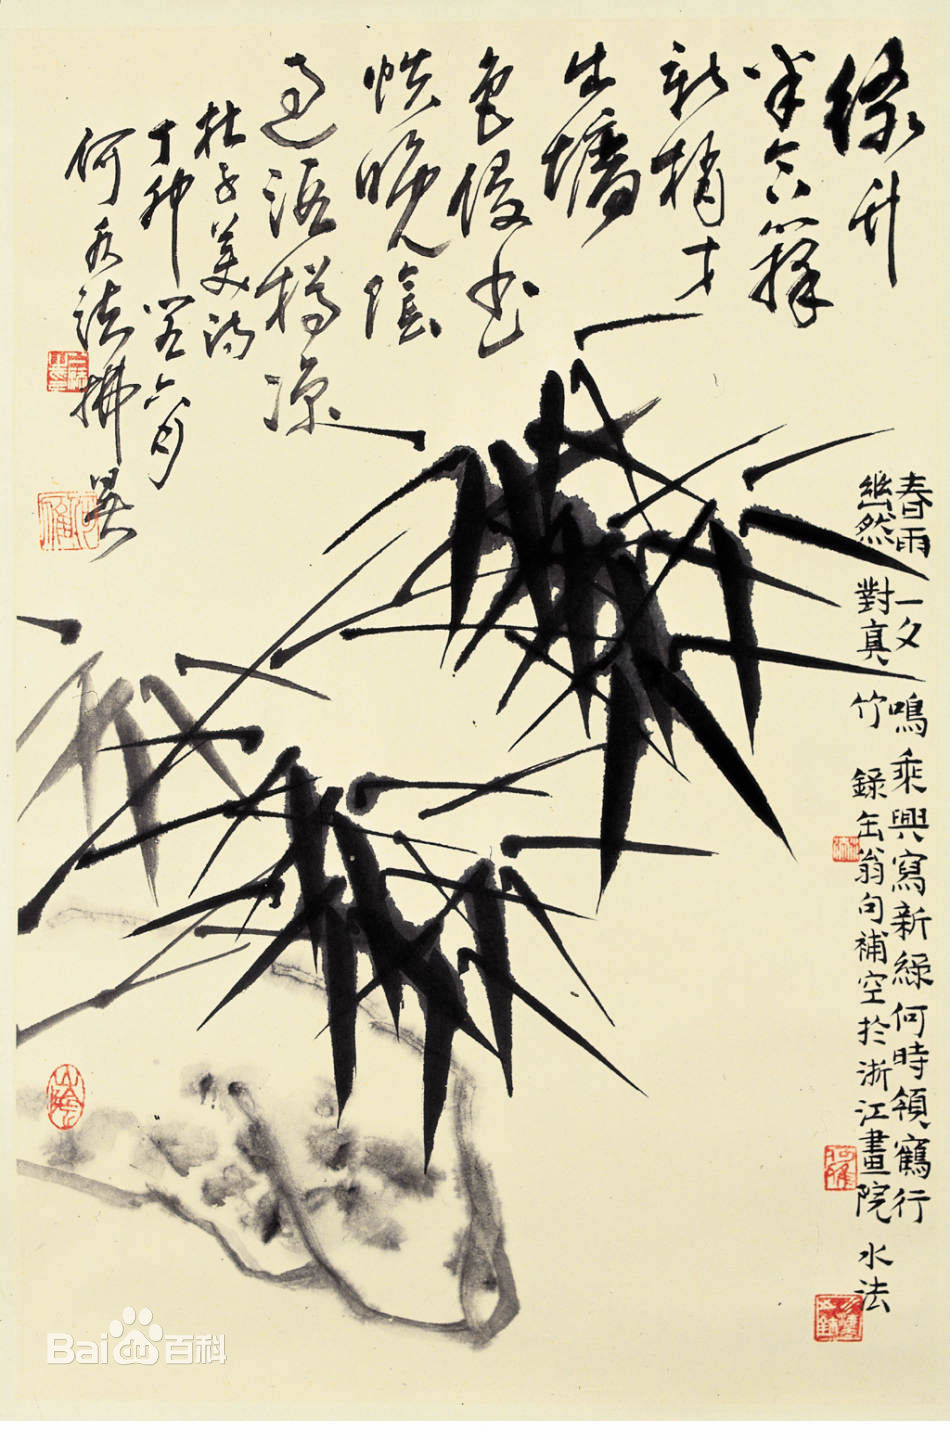 绿竹
半含籜
新梢才
出墻
色侵书
帙晚陰
過酒樽凉
杜子美诗
六月
何水法
春雨一夕鳴乘興寫新綠何時領鶴行
幽然對真竹 錄缶翁句補空於浙江畫院 水法
山陰
Baidu百科